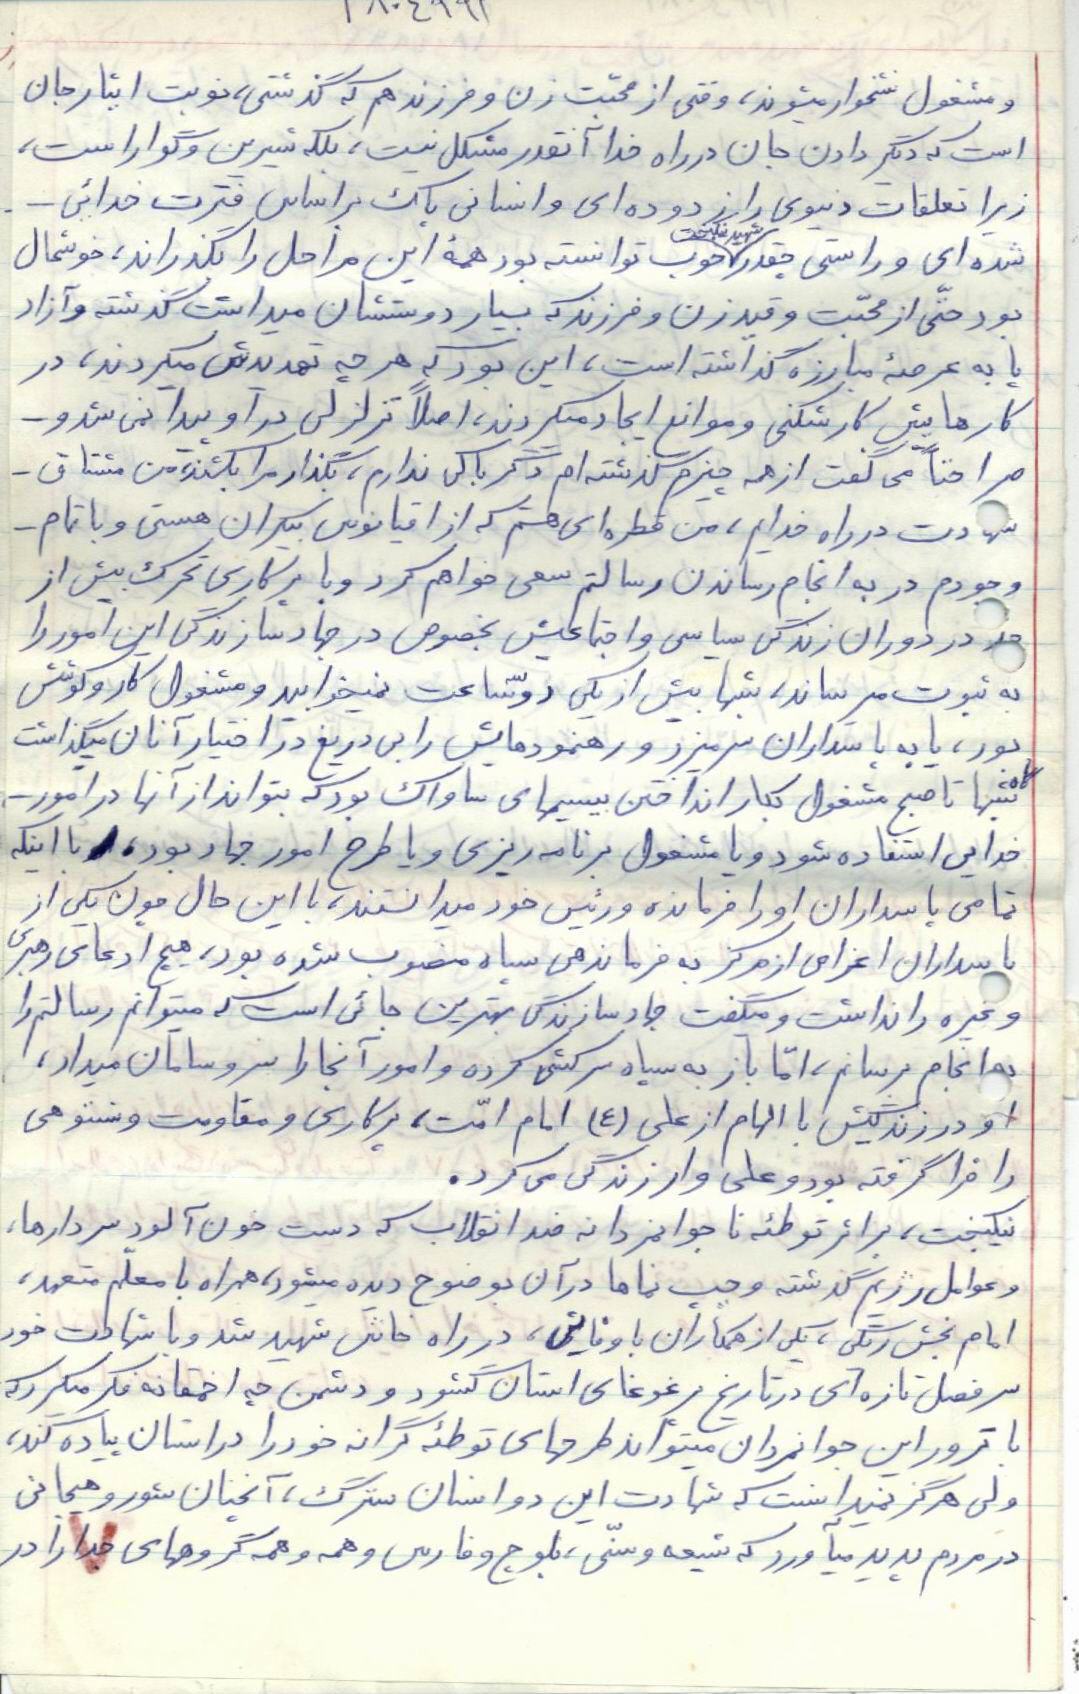 ۱۸۰٤۹۹۲
و مشغول نشخوار میشوند، وقتی از محبّت زن و فرزند هم که گذشتی، نوبت ایثار جان
است که دیگر دادن جان در راه خدا آنقدر مشکل نیست، بلکه شیرین و گوارا است،
زیرا تعلقات دنیوی را زدوده‌ای و انسانی پاک بر اساس فترت خدائی -
شده‌ای و راستی چقدر شهید نیکبخت خوب توانسته بود همهٔ این مراحل را بگذراند، خوشحال
بود حتّی از محبّت و قید زن و فرزند که بسیار دوستشان میداشت گذشته و آزاد
پا به عرصهٔ مبارزه گذاشته است، این بود که هر چه تهدیدش میکردند، در
کارهایش کارشکنی و موانع ایجاد میکردند، اصلاً تزلزلی در او پیدا نمی شد و -
صراحتاً می گفت از همه چیزم گذشته‌ام دگر باکی ندارم، بگذار مرا بکشند، من مشتاق -
شهادت در راه خدایم، من قطره‌ای هستم که از اقیانوس بیکران هستی و با تمام -
وجودم در به انجام رساندن رسالتم سعی خواهم کرد و با پرکاری تحرک بیش از
حد در دوران زندگی سیاسی و اجتماعیش بخصوص در جهاد سازندگی این امور را
به ثبوت میرساند، شبها بیش از یکی دو ساعت نمیخوابید و مشغول کار و کوشش
بود، پا به پا پاسداران سر میزد و رهنمودهایش را بی دریغ در اختیار آنان میگذاشت
گاه شبها تا صبح مشغول بکار انداختن بیسیمهای ساواک بود که بتواند از آنها در امور -
خدایی استفاده شود و یا مشغول برنامه ریزی و یا طرح امور جهاد بود، با اینکه
تمامی پاسداران او را فرمانده و رئیس خود میدانستند، با این حال چون یکی از
پاسداران اعزامی از مرکز به فرماندهی سپاه منصوب شده بود، هیچ ادعای رهبری
و غیره را نداشت و میگفت جهاد سازندگی بهترین جائی است که میتوانم رسالتم را
به انجام برسانم، امّا باز به سپاه سرکشی کرده و امور آنجا را سر و سامان میداد،
او در زندگیش با الهام از علی (ع) امام امّت، پرکاری و مقاومت و ستوهی
را فرا گرفته بود و علی وار زندگی می کرد.
نیکبخت، بر اثر توطئه ناجوانمردانه ضد انقلاب که دست خون آلود سردارها،
و عوامل رژیم گذشته و چپ نماها در آن بوضوح دیده میشود، همراه با معلّم متعهد،
امام بخش رنگی، یکی از همکاران باوفایش، در راه خاش شهید شد و با شهادت خود
سر فصل تازه‌ای در تاریخ پرغوغای استان گشود و دشمن چه احمقانه فکر میکرد که
با ترور این جوانمردان میتواند طرحهای توطئه گرانه خود را در استان پیاده کند،
ولی هرگز نمیدانست که شهادت این دو انسان سترگ، آنچنان شور و هیجانی
در مردم پدید میآورد که شیعه و سنّی، بلوچ و فارس و همه و همه گروههای جدا را در
۷